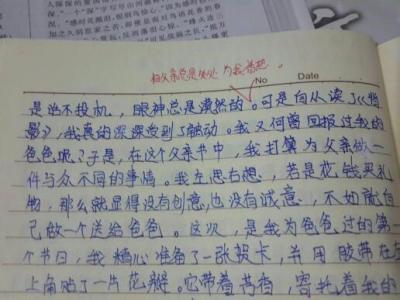 但父亲总是处处为我着想。
No Date
是话不投机，眼神总是漠然的。可是自从读了《背
影》，我真的深深受到了触动。我又何曾回报过我的
爸爸呢？于是，在这个父亲节中，我打算为父亲做一
件与众不同的事情。我左思右想，若是花钱买礼
物，那么就显得没有创意，也没有诚意，不如就自
己做一个送给爸爸。这次，是我为爸爸过的第一
个节日，我精心准备了一张贺卡，并用胶带在左
上角贴了一片花瓣。它带着芳香，寄托着我的